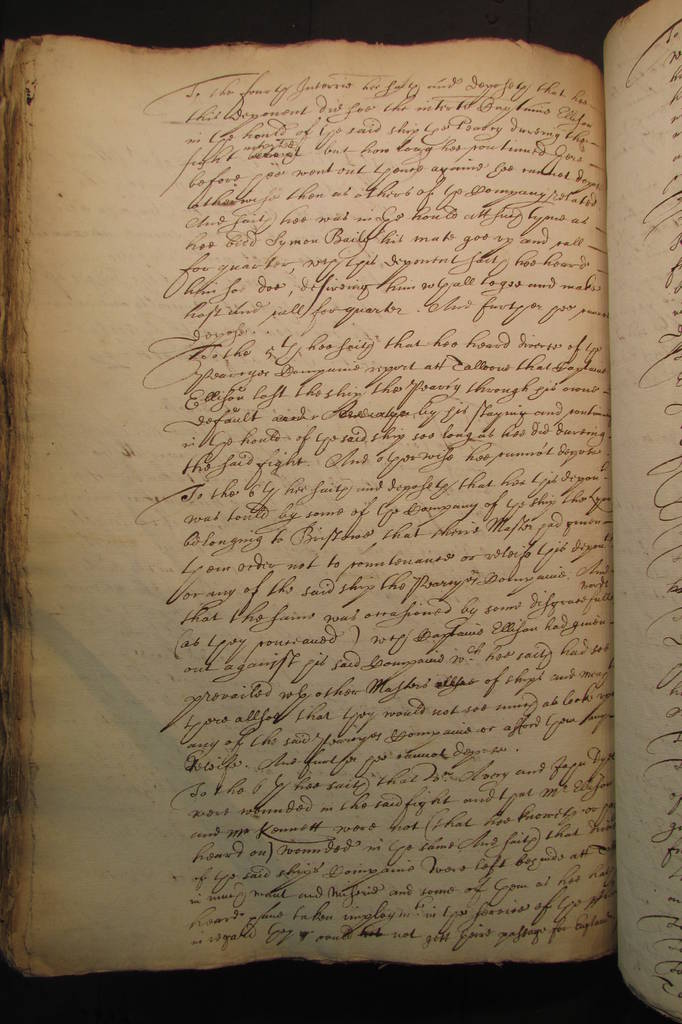 To the fourth Interrie hee saith and deposeth that hee
this deponent did see the interrte Captaine Ellison
in the hould of the said ship the Pearcy dureing the
fight but how long hee continued there
before hee went out thence againe hee cannot depose
otherwise then as others of the Company related
And saith hee was in the hould att such tyme as
hee did Symon Baily his mate goe up and call
for quarter, with this deponent saith hee heard
him soe doe, desireing him withall to goe and make
hast and call for quarter. And further hee cannot
depose.
To the 5th hee saith that hee heard diverse of the
Pearcyes Companie report att Talloone that Captaine
Ellison lost the ship the Pearcy through his owne
default by his staying and
in the hould of the said ship soe long as hee did dureing
the said fight. And otherwise hee cannot depose.
To the 6th hee saith and deposeth that hee this deponent
was tould by some of the Company of the ship the
belonging to Bristowe that theire Master had given
them order not to countenance or releive this deponent
or any of the said ship the Pearcyes Companie. And
that the same was occasioned by some disgracefull words
(as they conceaved) with Captaine Ellison had given
out against his said Companie wch hee saith had soe
prevailed with other Masters of ships and
there allsoe that they would not soe much as look upon
any of the said Pearcyes Companie or afford them any
Releife. And further hee cannot depose.
To the 6th hee saith that Avory and
were wounded in the said fight and that Mr Ellison
and Mr Kennett were not (that hee knoweth or
heard on) wounded in the same And saith that
of the said ships Companie were left behinde att
in much want and Miserie and some of them as hee hath
heard have taken imploymt in the service of the
in regard they could not gett theire passage for England